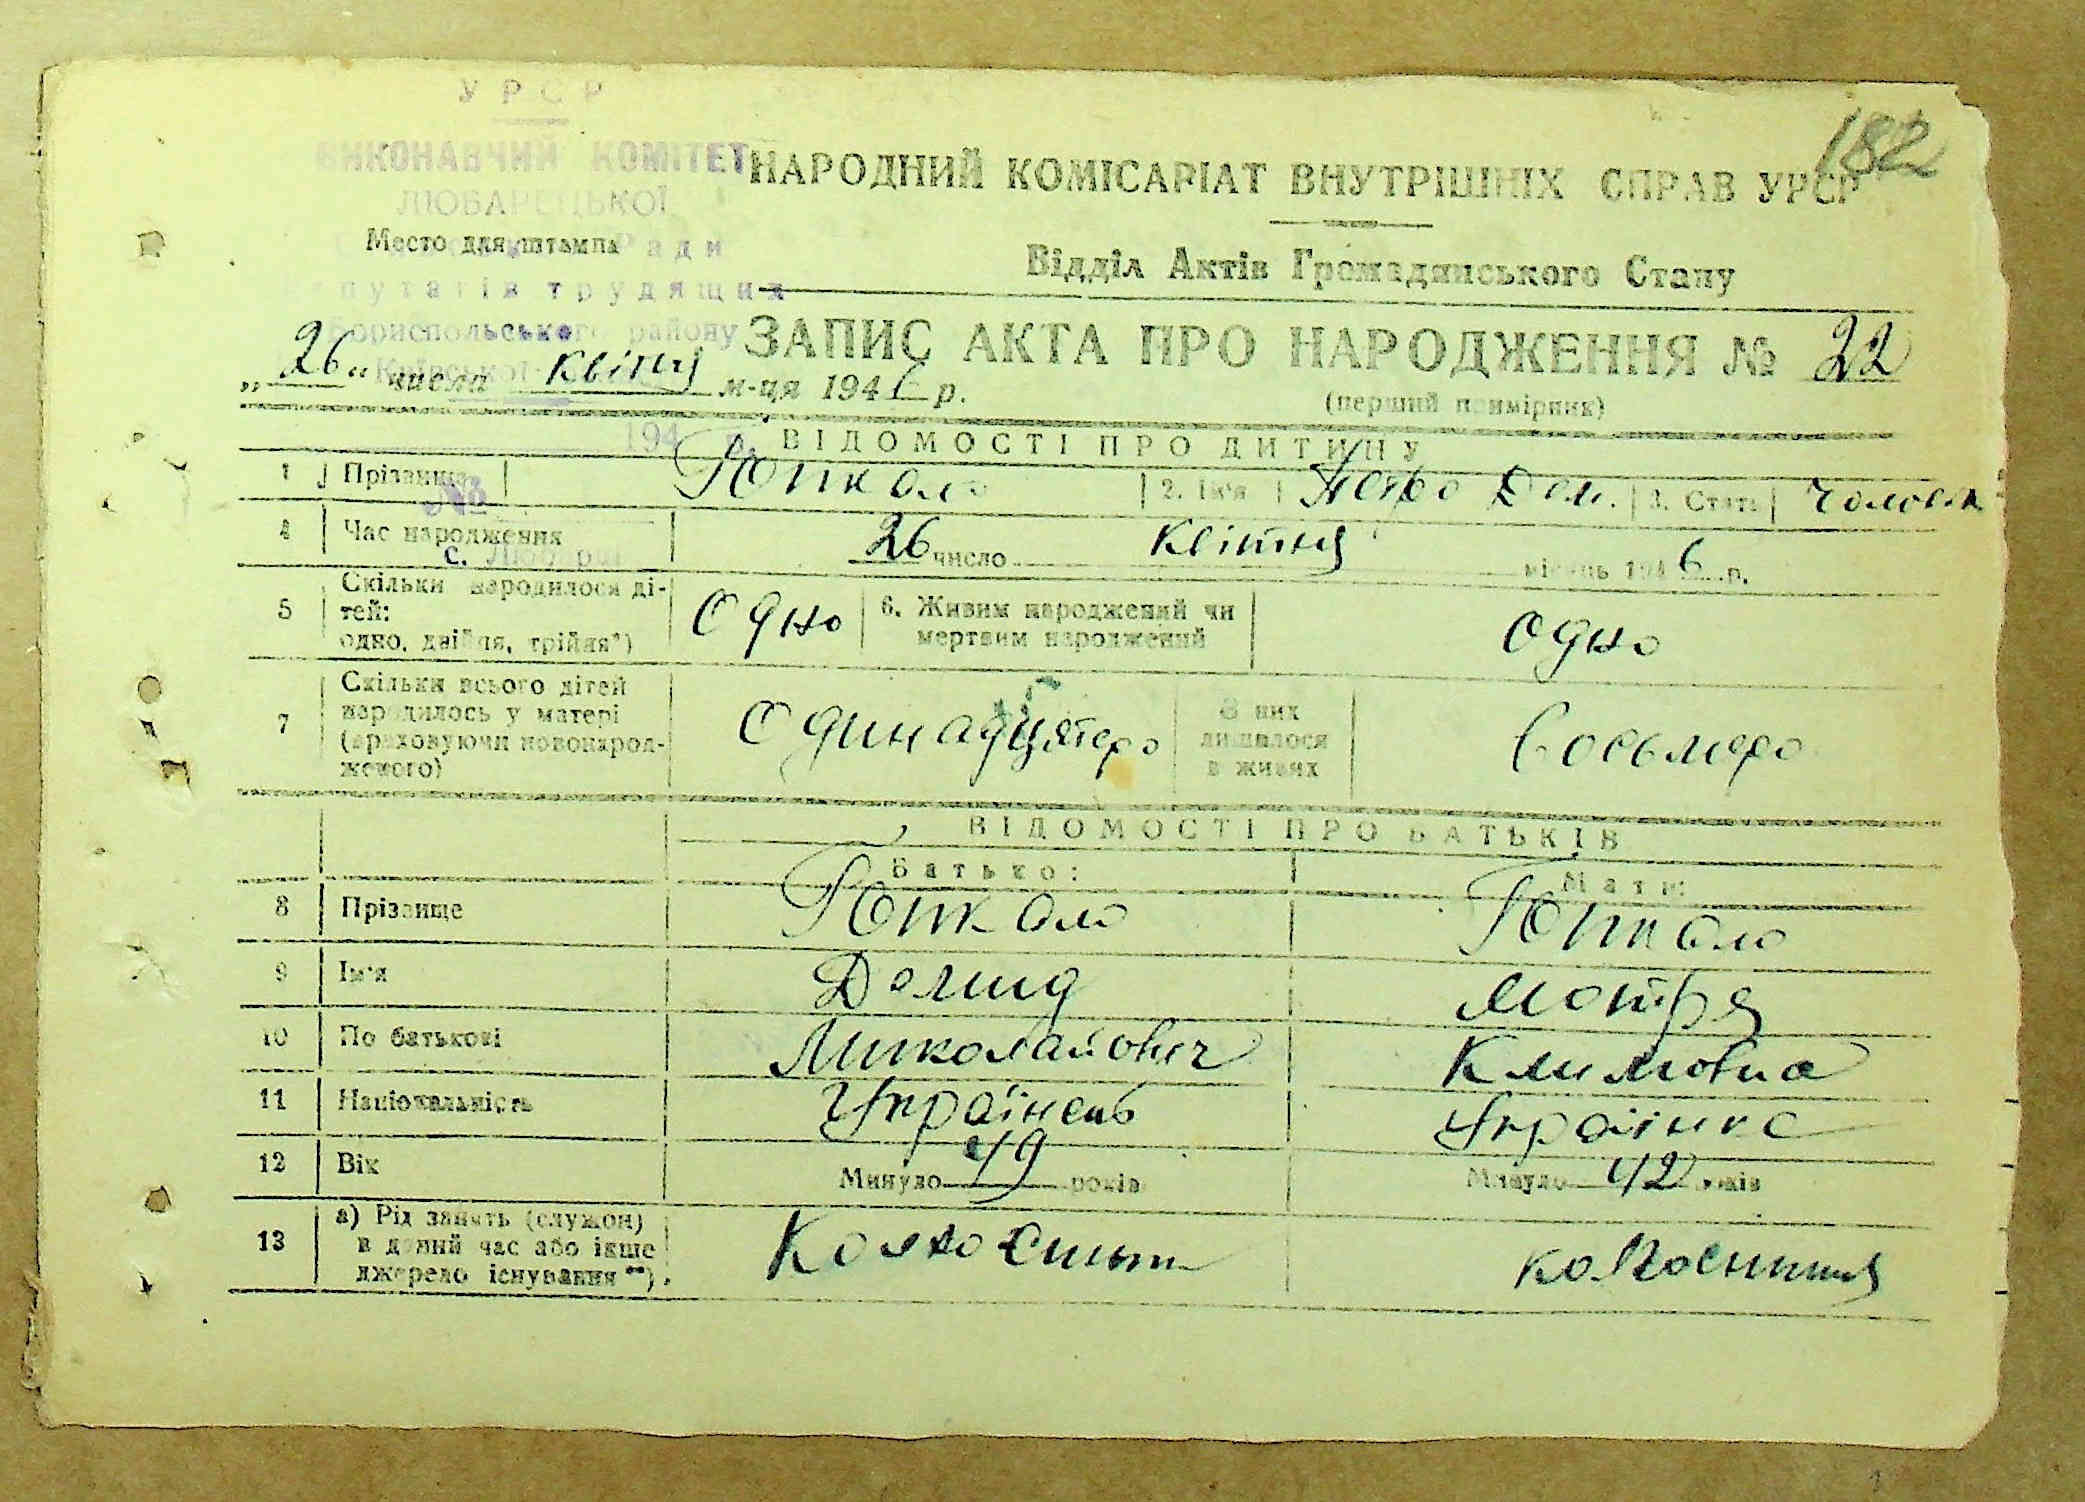 182
УРСР
ВИКОНАВЧИЙ КОМІТЕТ
ЛЮБАРЕЦЬКОЇ
Ради
депутатів трудящих
Бориспольського району
Київської
194 р.
№
с. Любарці
Место для штампа
НАРОДНИЙ КОМІСАРІАТ ВНУТРІШНІХ СПРАВ УРСР
Відділ Актів Громадянського Стану
ЗАПИС АКТА ПРО НАРОДЖЕННЯ № 22
„26“ числа квітня м-ця 1946 р.
(перший примірник)
ВІДОМОСТІ ПРО ДИТИНУ
1 Прізвище Юпкало 2. Ім'я Петро Дем. 3. Стать чоловіч
4 Час народження 26 число квітня місяць 1946 р.
5 Скільки народилося ді-
тей:
одно, двійня, трійня*) Одно 6. Живим народжений чи
мертвим народжений одно
7 Скільки всього дітей
народилось у матері
(враховуючи новонарод-
женого) Одинадцятеро З них
лишилося
в живих Восьмеро
ВІДОМОСТІ ПРО БАТЬКІВ
Батько: Мати:
8 Прізвище Юпкало Юпкало
9 Ім'я Демид Мотря
10 По батькові Миколайович Климовна
11 Національність Українець Українка
12 Вік Минуло 49 років Минуло 42 років
13 а) Рід занять (служби)
в даний час або інше
джерело існування**). Колхосник колхосниця